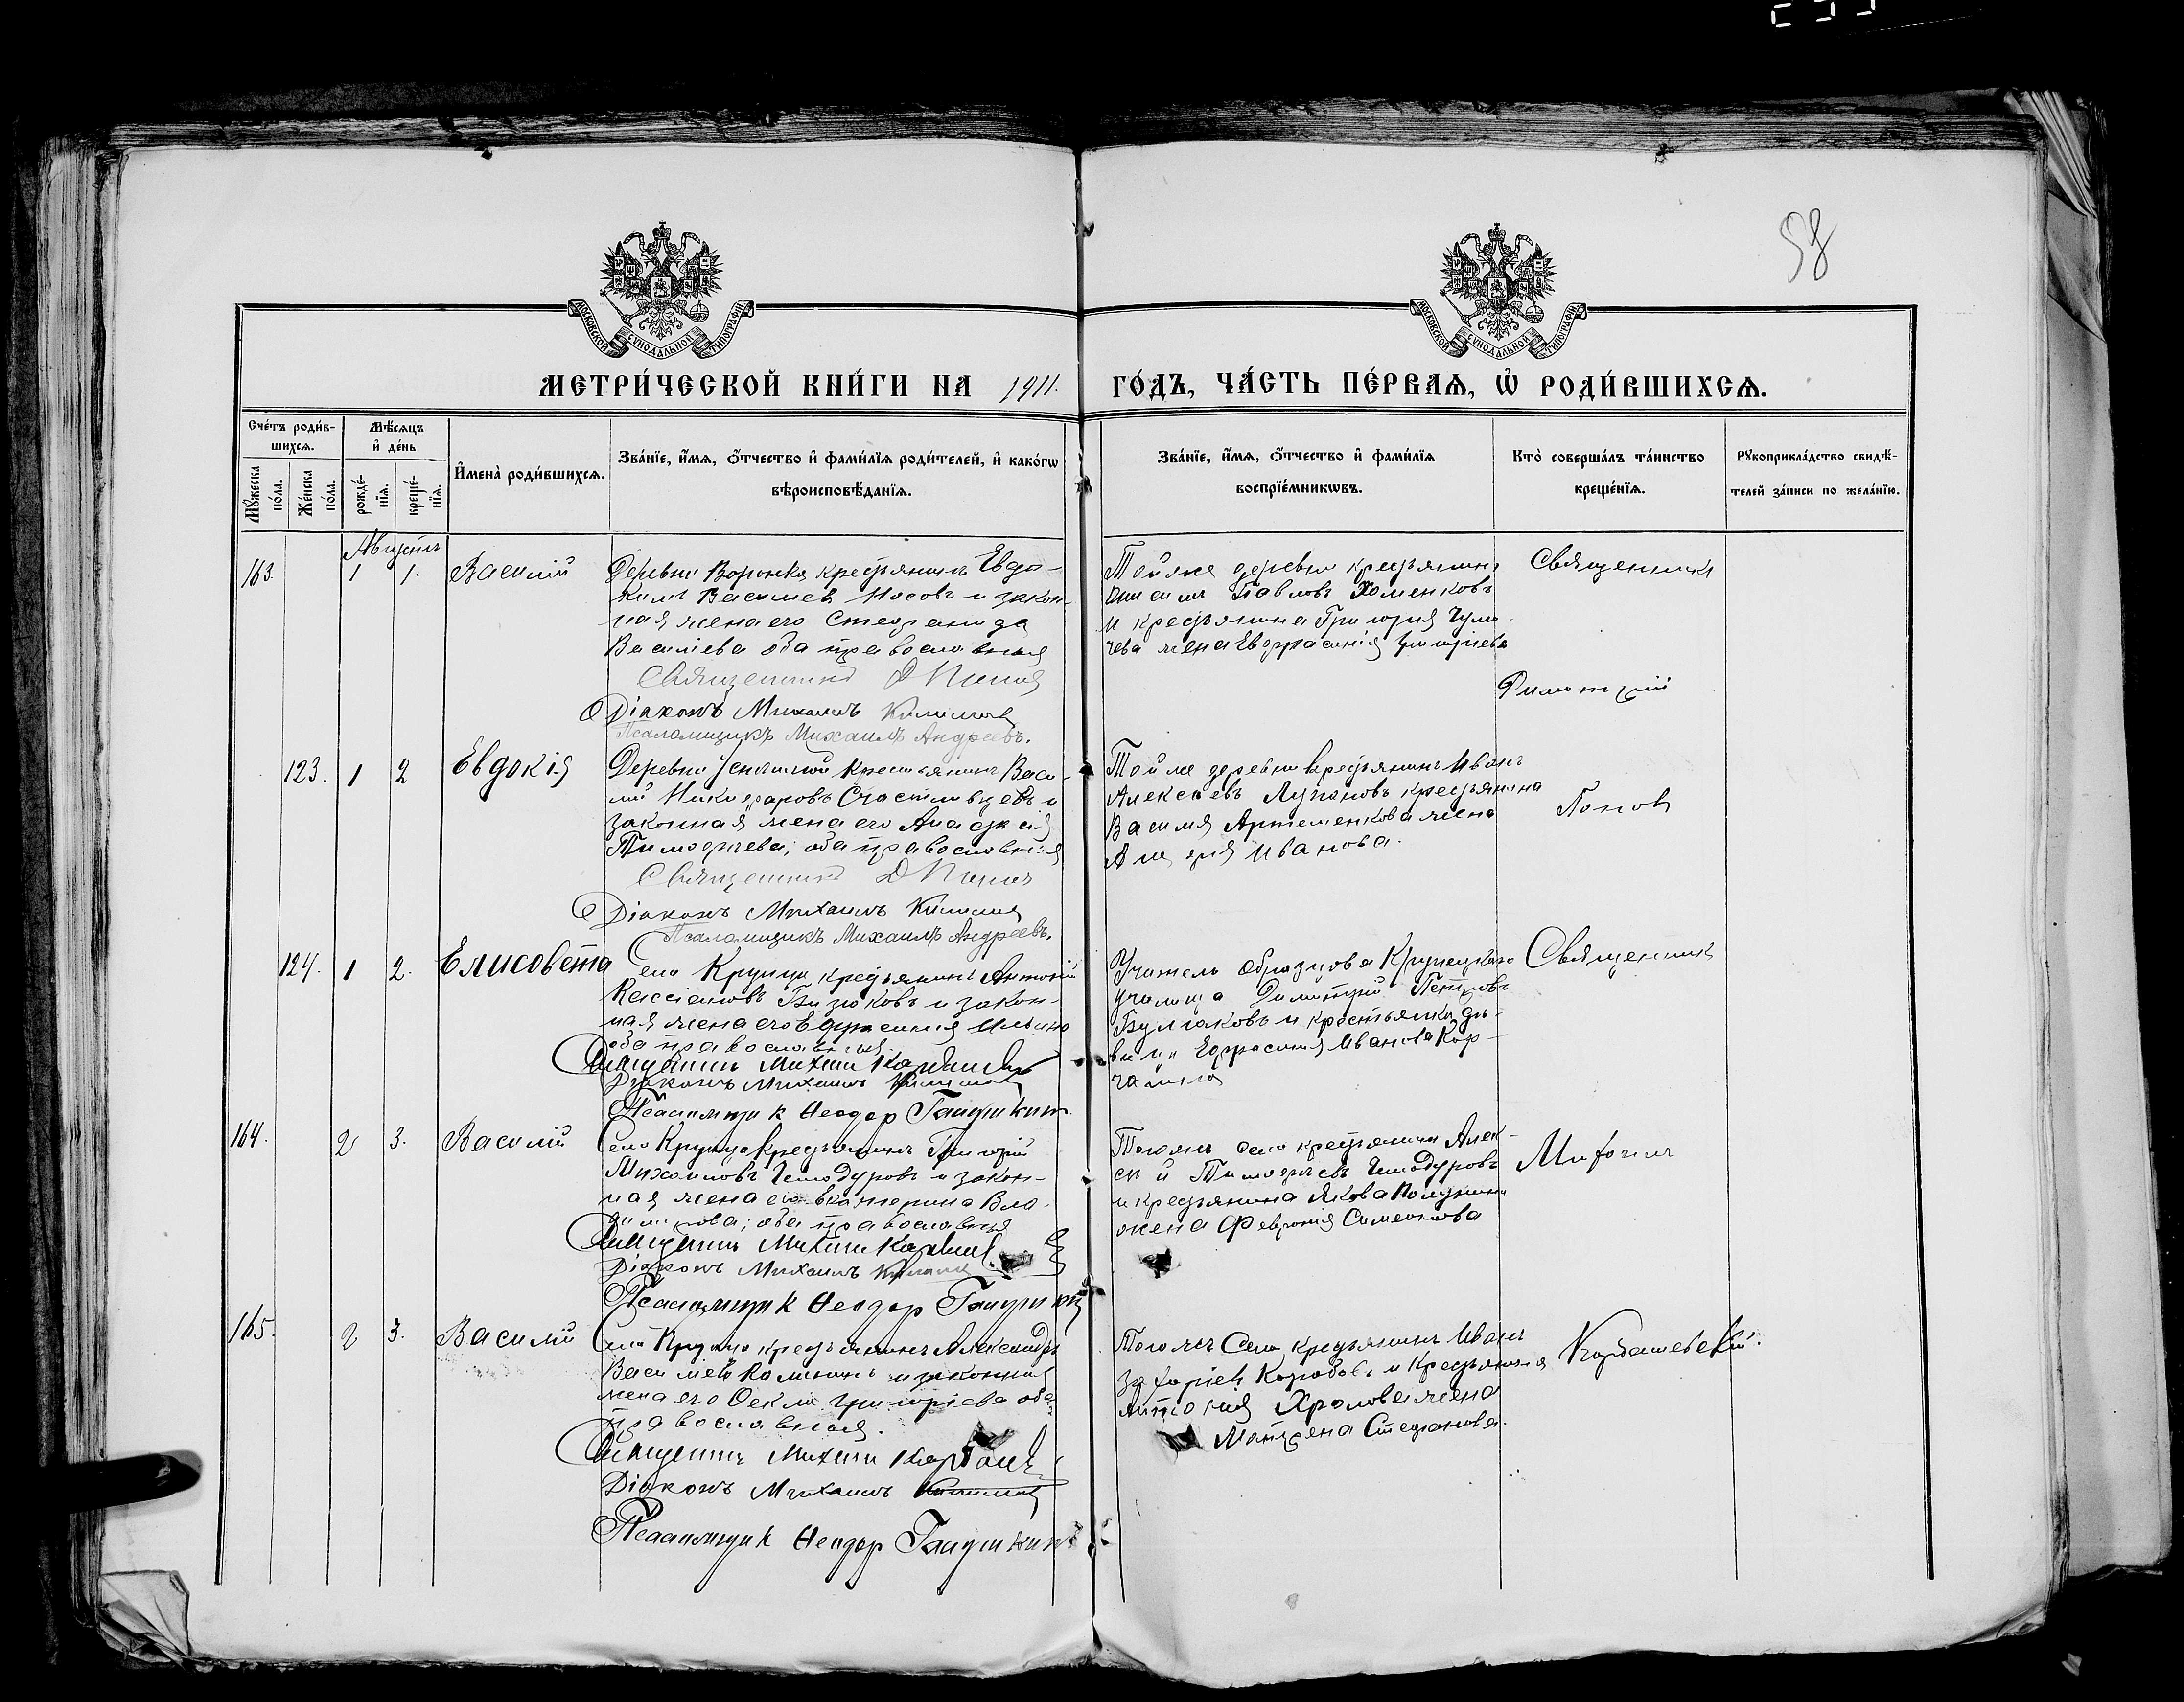 58
МОСКОВСКОЙ СѴНОДАЛЬНОЙ ТИПОГРАФІИ
МОСКОВСКОЙ СѴНОДАЛЬНОЙ ТИПОГРАФІИ
МЕТРИ́ЧЕСКОЙ КНИ́ГИ НА 1911. ГО́ДЪ, ЧА́СТЬ ПЕ́РВАѦ, Ѡ҆ РОДИ́ВШИХСѦ.
Сче́тъ роди́в-
шихсѧ.
Мꙋ́жеска по́ла.
Же́нска по́ла.
Мѣ́сѧцъ
и҆ де́нь
рожде́-
нїѧ.
креще́-
нїѧ.
И҆мена̀ роди́вшихсѧ.
Зва́нїе, и҆́мѧ, ѻ҆́тчество и҆ фами́лїѧ роди́телей, и҆ како́гѡ
вѣроисповѣ́данїѧ.
Зва́нїе, и҆́мѧ, ѻ҆́тчество и҆ фами́лїѧ
воспрїе́мникѡвъ.
Кто̀ соверша́лъ та́инство
креще́нїѧ.
Рꙋкоприкла́дство свидѣ́-
телей за́писи по жела́нїю.
Августъ
163. 1 1. Василій
Деревни Воронка крестьянинъ Евдо-
кимъ Васильевъ Носовъ и закон-
ная жена его Стефанида
Васильева оба православныя
Священникъ Д Поповъ
Діаконъ Михаилъ
Псаломщикъ Михаилъ Андреевъ.
Той же деревни крестьянинъ
Павловъ Хоменковъ
и крестьянина Григорія
жена Евфросинія Григорьева
Священникъ
Димитрій
Поповъ
123. 1 2 Евдокія
Деревни крестьянинъ Васи-
лій Никифоровъ Счастливцевъ и
законная жена его
Тимофеева; оба православныя
Священникъ Д Поповъ
Діаконъ Михаилъ
Псаломщикъ Михаилъ Андреевъ.
Той же деревни крестьянинъ Иванъ
Алексеевъ крестьянина
Василія Артеменкова жена
Иванова.
124. 1 2. Елисовета
Села Крупца крестьянинъ Антоній
Кассіановъ Бирюковъ и закон-
ная жена его Ефросинія Ильина
оба православныя.
Священникъ Митрофанъ
Діаконъ Михаилъ
Псаломщикъ Ѳеодоръ Галушкинъ
Учитель образцова Крупецкаго
училища Димитрій Петровъ
Булгаковъ и крестьянка дѣ-
вица Ефросинія Иванова Кор-
Священникъ
164. 2 3. Василій
Села Крупца крестьянинъ Григорій
Михаиловъ Чемодуровъ и закон-
ная жена его Екатерина Вла-
димирова; оба православныя
Священникъ
Діаконъ Михаилъ
Псаломщикъ Ѳеодоръ Галушкинъ
Тогожъ села крестьянинъ Алек-
сѣй Тимофеевъ Чемодуровъ
и крестьянина Якова
жена Февронія Симеонова
165. 2 3. Василій
Села Крупца крестьянинъ Александръ
Васильевъ Калининъ и законная
жена его Ѳекла Григорьева оба
православныя.
Священникъ
Діаконъ Михаилъ
Псаломщикъ Ѳеодоръ Галушкинъ
Тогожъ Села крестьянинъ Иванъ
Захаріевъ Коробовъ и крестьянина
Антонія Фролова жена
Матрена Стефанова.
Кордашевскій.